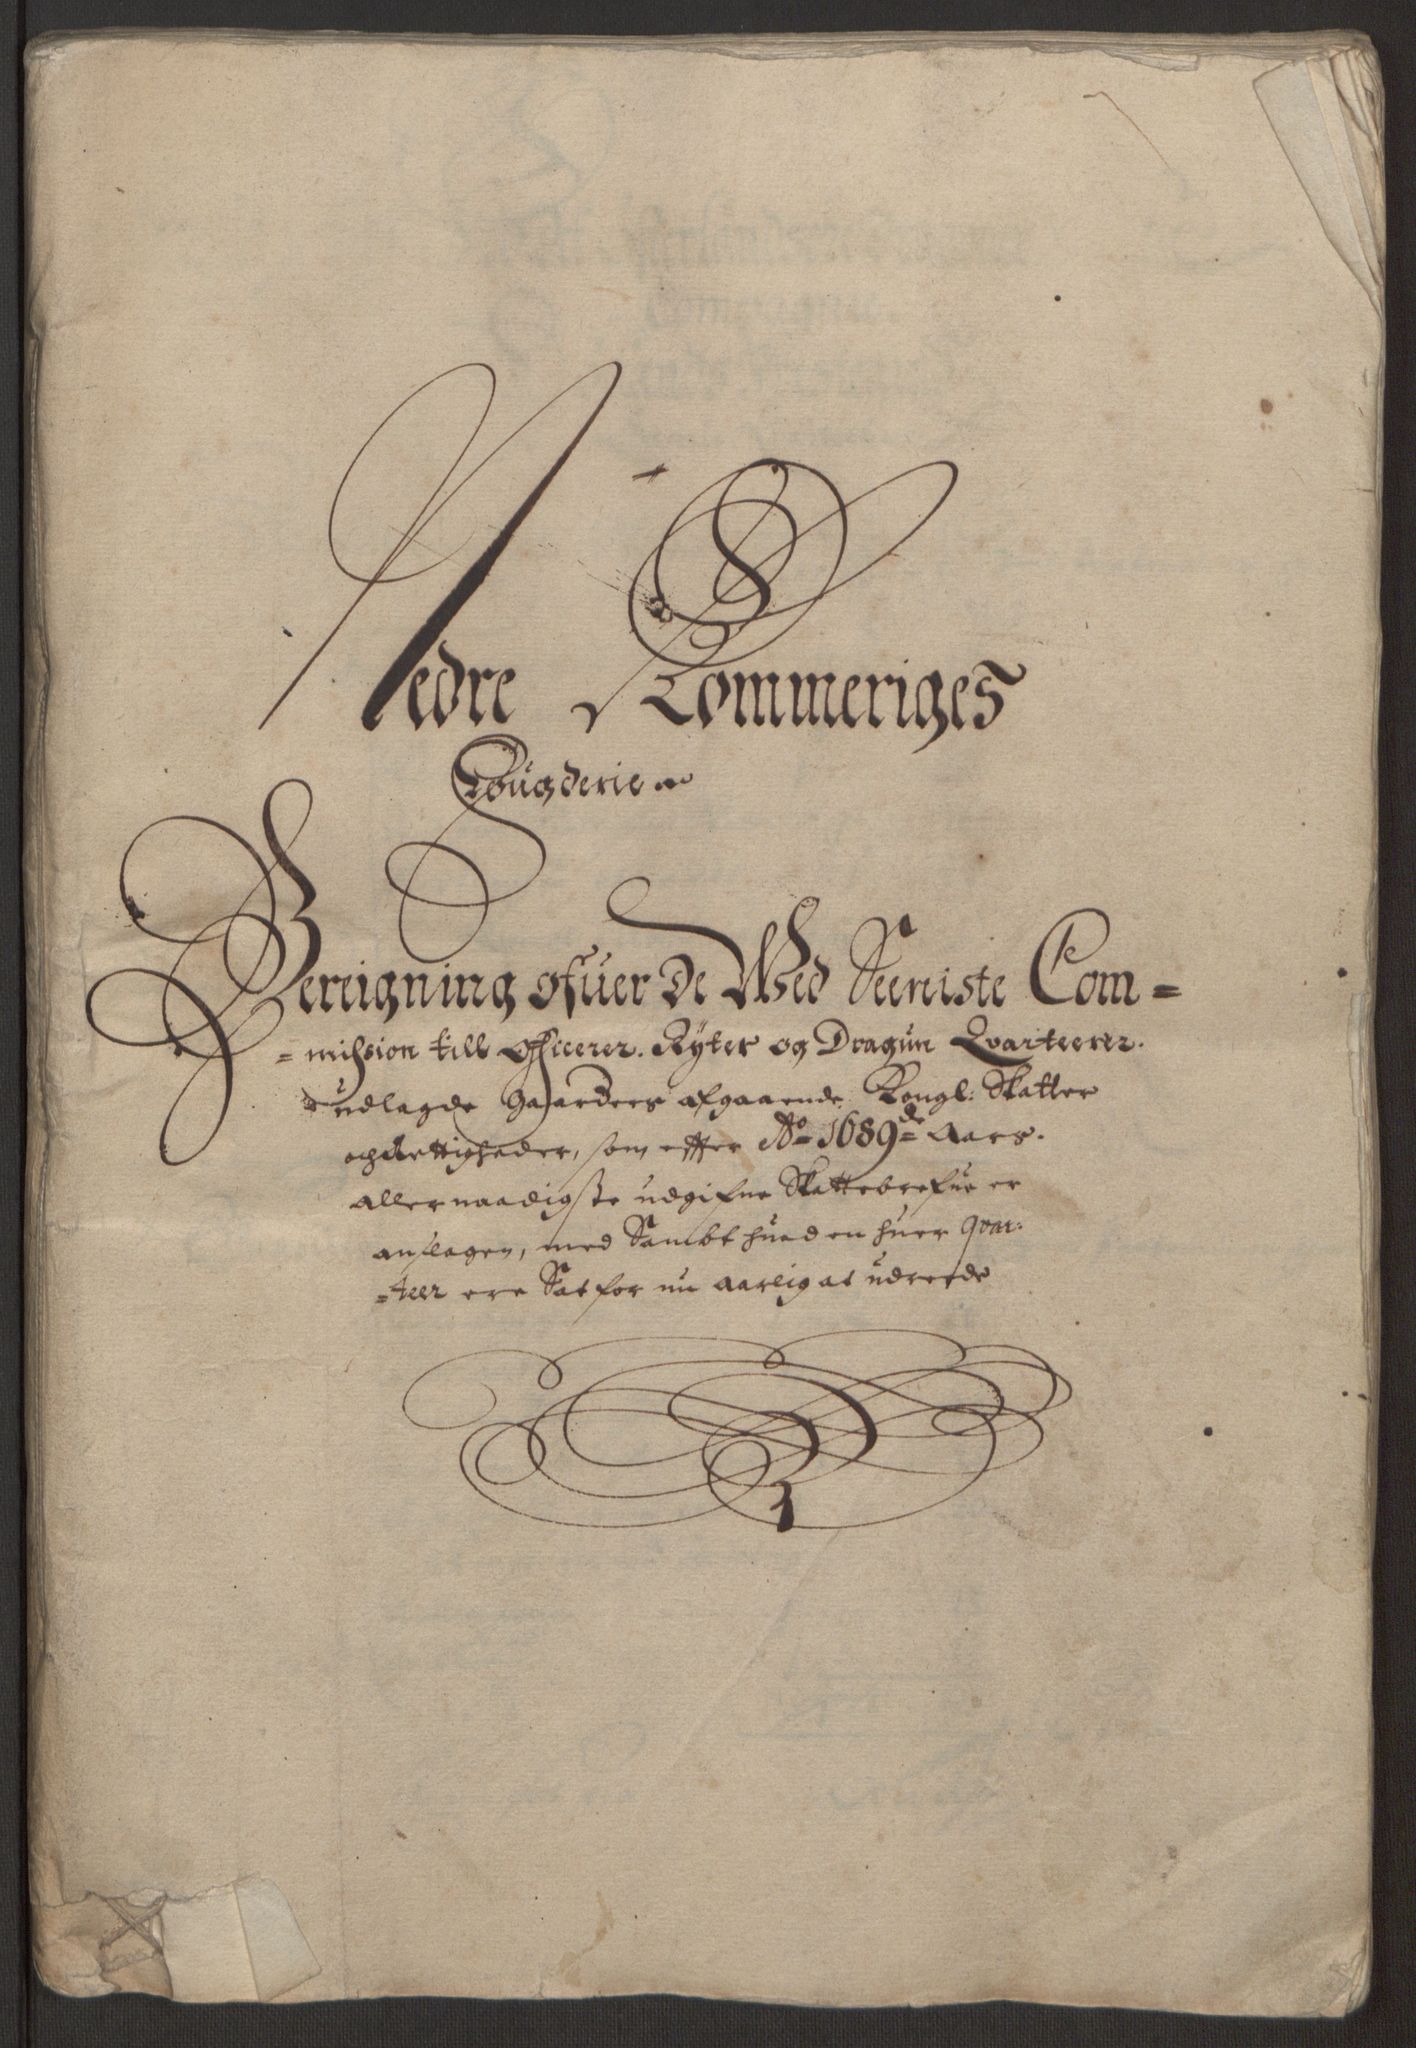 Nedre Rommeriges
Fougderie
Bereigning ofuer De Wed Seeniste Com=
=mihsion till Officerer. Rÿter og Dragun Qvarteerer.
udlagde Gaarders afgaaende Kongl: Skatter
och Rettigheder, som effter Ao 1689de Aars.
Allernaadigste udgifne Skattebrefue er
anslagen, med Sambt huad en huer qvar:
=teer ere Sat for nu Aarlig at udreede